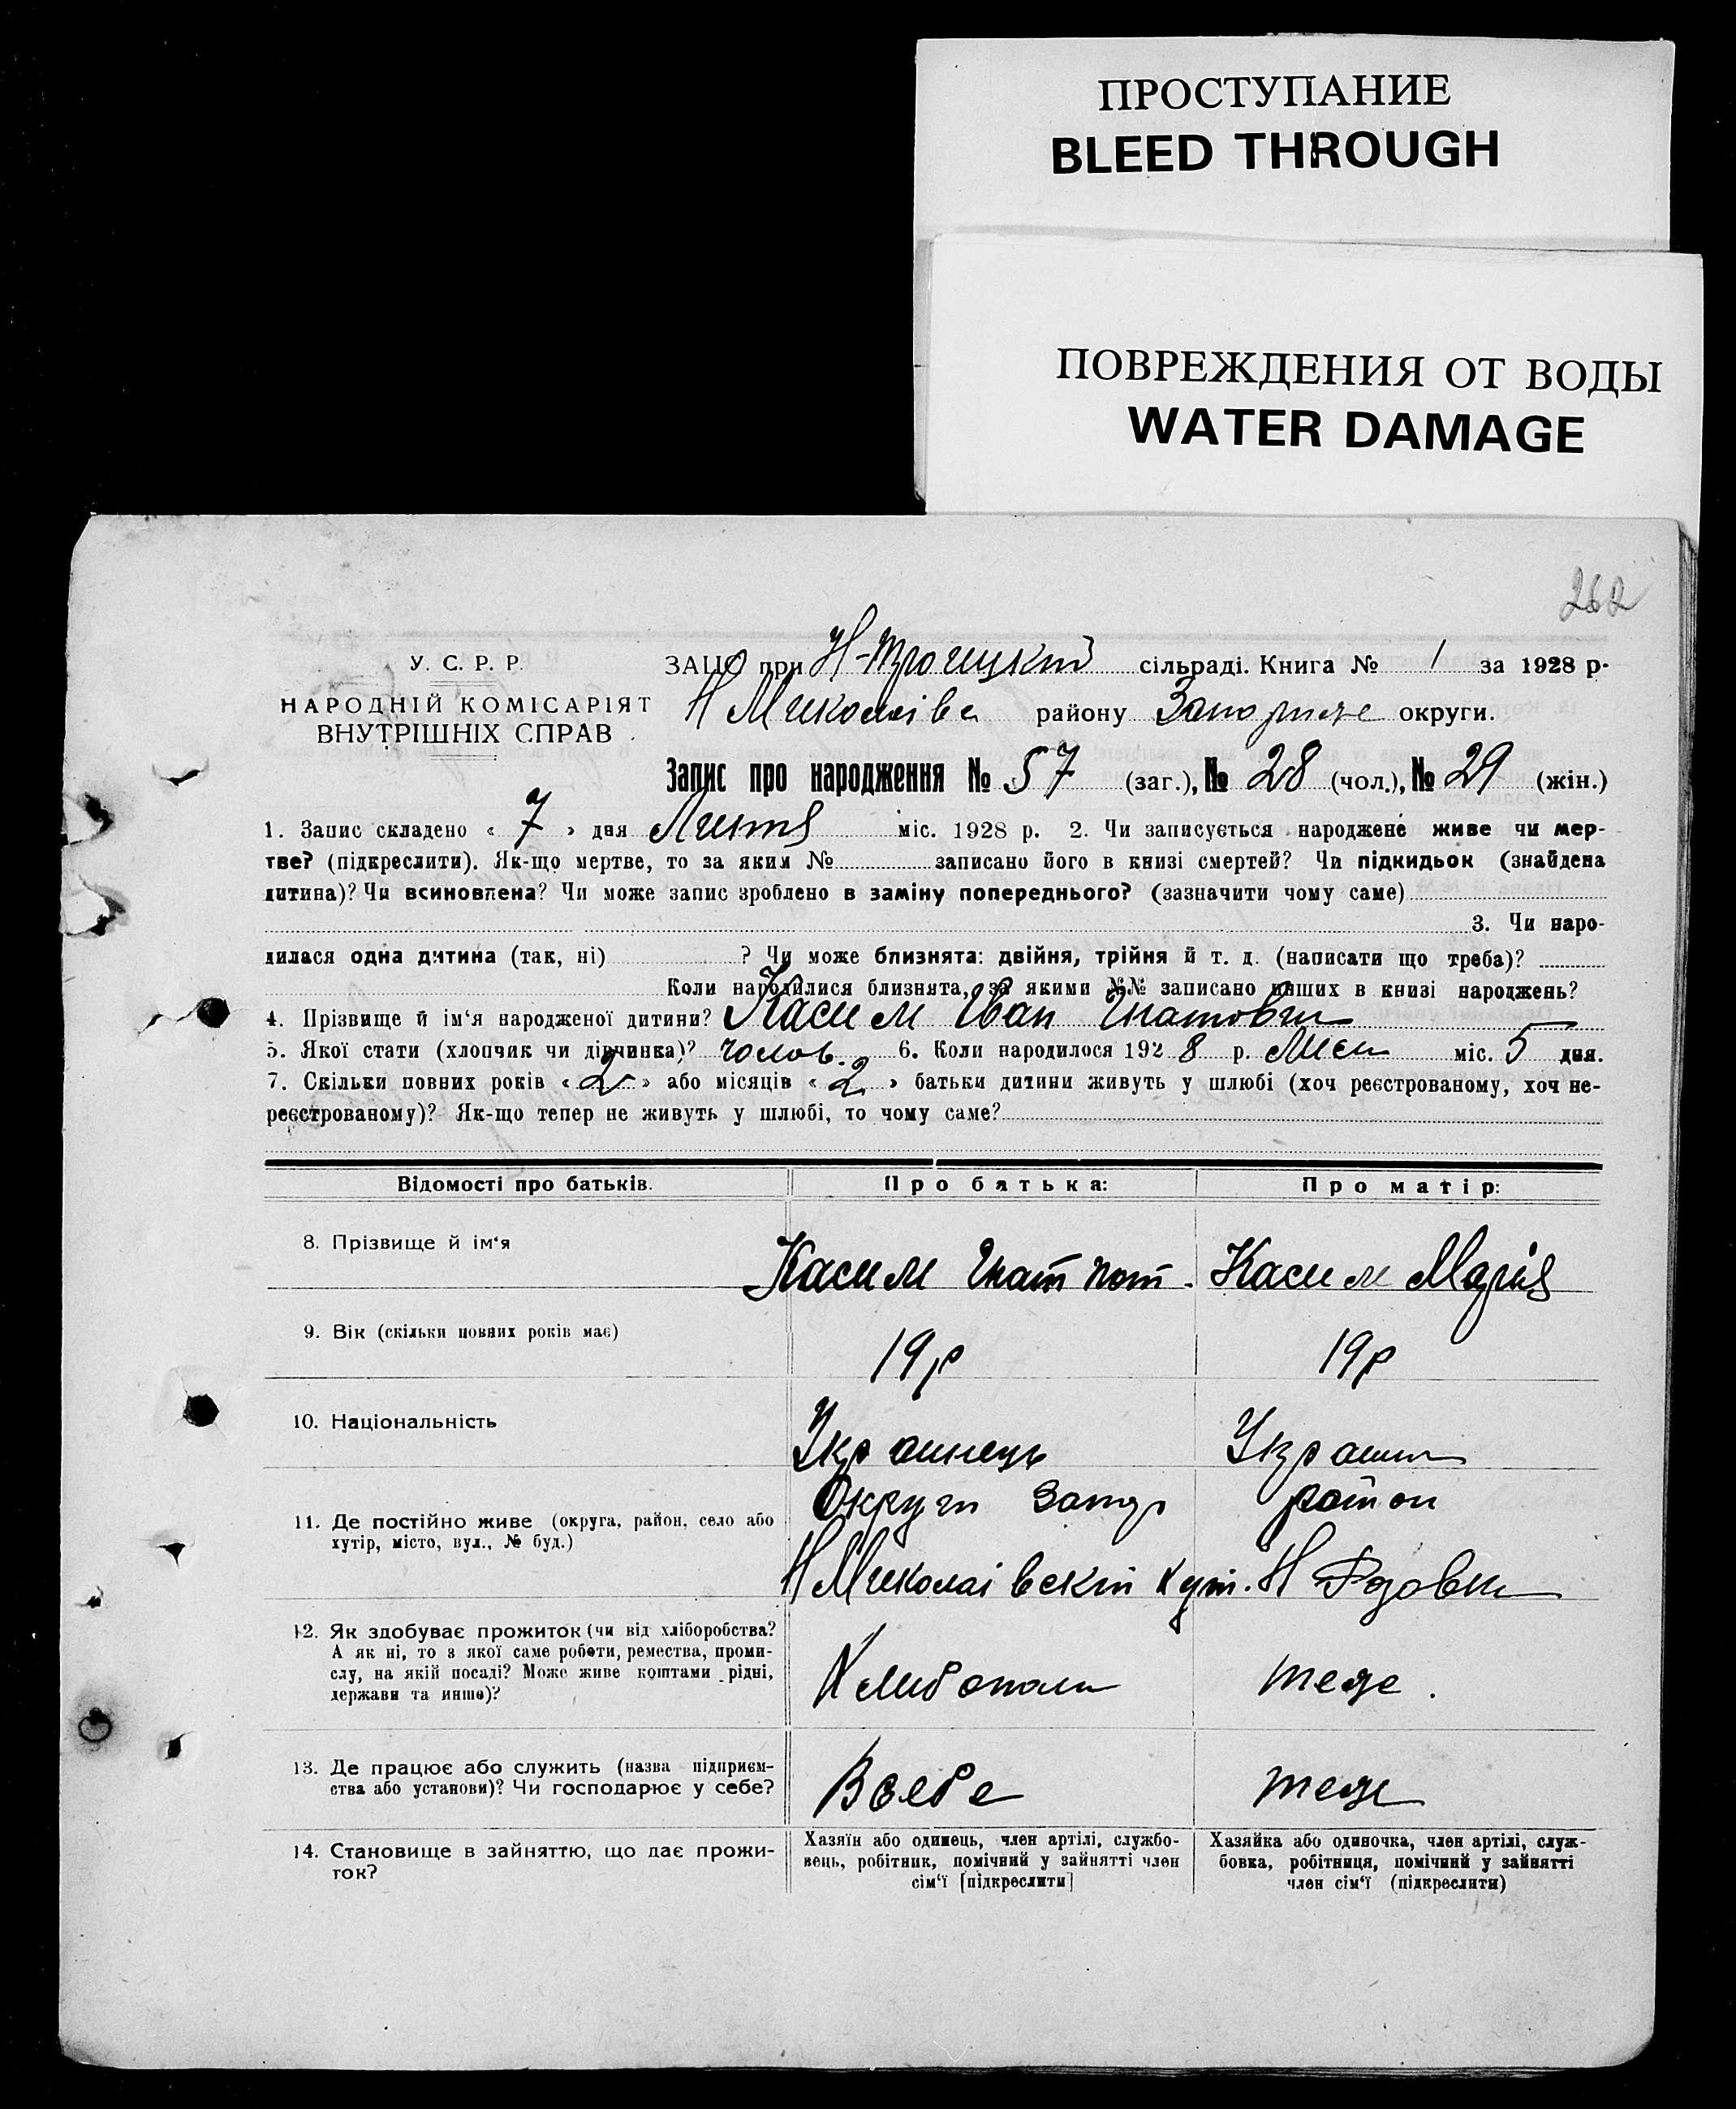 ПРОСТУПАНИЕ
BLEED THROUGH
ПОВРЕЖДЕНИЯ ОТ ВОДЫ
WATER DAMAGE
262
У. С. Р. Р.
НАРОДНІЙ КОМІСАРІЯТ
ВНУТРІШНІХ СПРАВ
ЗАЦС при Н-Троицкий сільраді. Книга № 1 за 1928 р.
Н Миколаівс району округи.
Запис про народження № 57 (заг.), № 28 (чол.), № 29 (жін.)
1. Запис складено « 7 » дня міс. 1928 р. 2. Чи записується народжене живе чи мер-
тве? (підкреслити). Як-що мертве, то за яким № записано його в книзі смертей? Чи підкидьок (знайдена
дитина)? Чи всиновлена? Чи може запис зроблено в заміну попереднього? (зазначити чому саме)
3. Чи наро-
дилася одна дитина (так, ні) ? Чи може близнята: двійня, трійня й т. д. (написати що треба)?
Коли народилися близнята, за якими №№ записано инших в книзі народжень?
4. Прізвище й ім‘я народженої дитини? Касим Іван Гнатович
5. Якої статі (хлопчик чи дівчинка)? чолов. 6. Коли народилося 1928 р. міс. 5 дня.
7. Скільки повних років « 2 » або місяців « 2 » батьки дитини живуть у шлюбі (хоч реєстрованому, хоч не-
реєстрованому)? Як-що тепер не живуть у шлюбі, то чому саме?
Відомості про батьків. Про батька: Про матір:
8. Прізвище й ім‘я Касим Гнат Касим Марія
9. Вік (скільки повних років має) 19 р 19 р
10. Національність Українець Україн
Округи Запор район
11. Де постійно живе (округа, район, село або
хутір, місто, вул., № буд.)
Н Миколаівский хут. Н
12. Як здобуває прожиток (чи від хліборобства?
А як ні, то з якої саме роботи, ремества, проми-
слу, на якій посаді? Може живе коштами рідні,
держави та инше)?
теже.
13. Де працює або служить (назва підприєм-
ства або установи)? Чи господарює у себе?
Всебе теже
14. Становище в зайняттю, що дає прожи-
ток?
Хазяїн або одинець, член артілі, службо-
вець, робітник, помічний у зайнятті член
сім‘ї [підкреслити]
Хазяйка або одиночка, член артілі, служ-
бовка, робітниця, помічний у зайнятті
член сім‘ї (підкреслити)